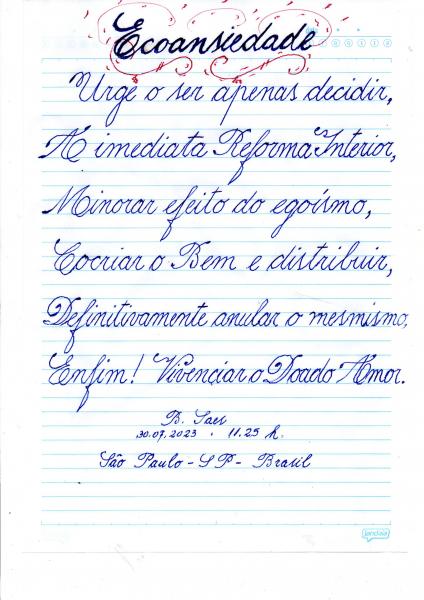 Ecoansiedade
Urge o ser apenas decidir,
A imediata Reforma Interior,
Minorar efeito do egoísmo,
Cocriar o Bem e distribuir,
Definitivamente anular o mesmismo,
Enfim! Vivenciar o Doado Amor.
B. Saes
30.07.2023 . 11.25 h.
São Paulo - SP - Brasil
jandaia